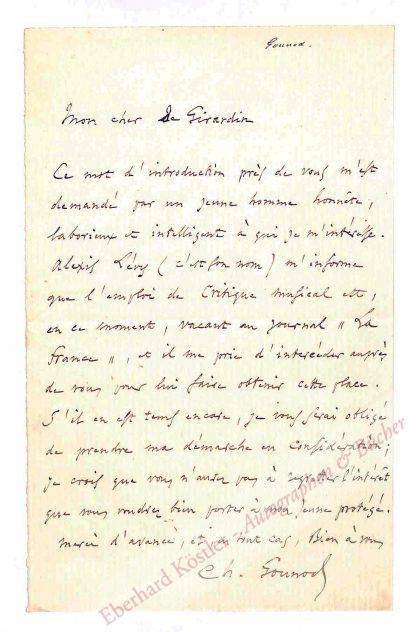 Gounod.
Mon cher De Girardin
Ce mot d'introduction près de vous m'est
demandé par un jeune homme honnête,
laborieux et intelligent à qui je m'intéresse.
Alexis Lévy (c'est son nom) m'informe
que l'emploi de Critique musical est,
en ce moment, vacant au journal "La
France", et il me prie d'intercéder auprès
de vous pour lui faire obtenir cette place.
S'il en est tems encore, je vous serai obligé
de prendre ma démarche en Considération;
je crois que vous n'aurez pas à regretter l'intérêt
que vous voudrez bien porter à mon jeune protégé.
merci d'avance, et, en tout cas, Bien à vous
Ch. Gounod
Eberhard Köstler - Autographen & Bücher